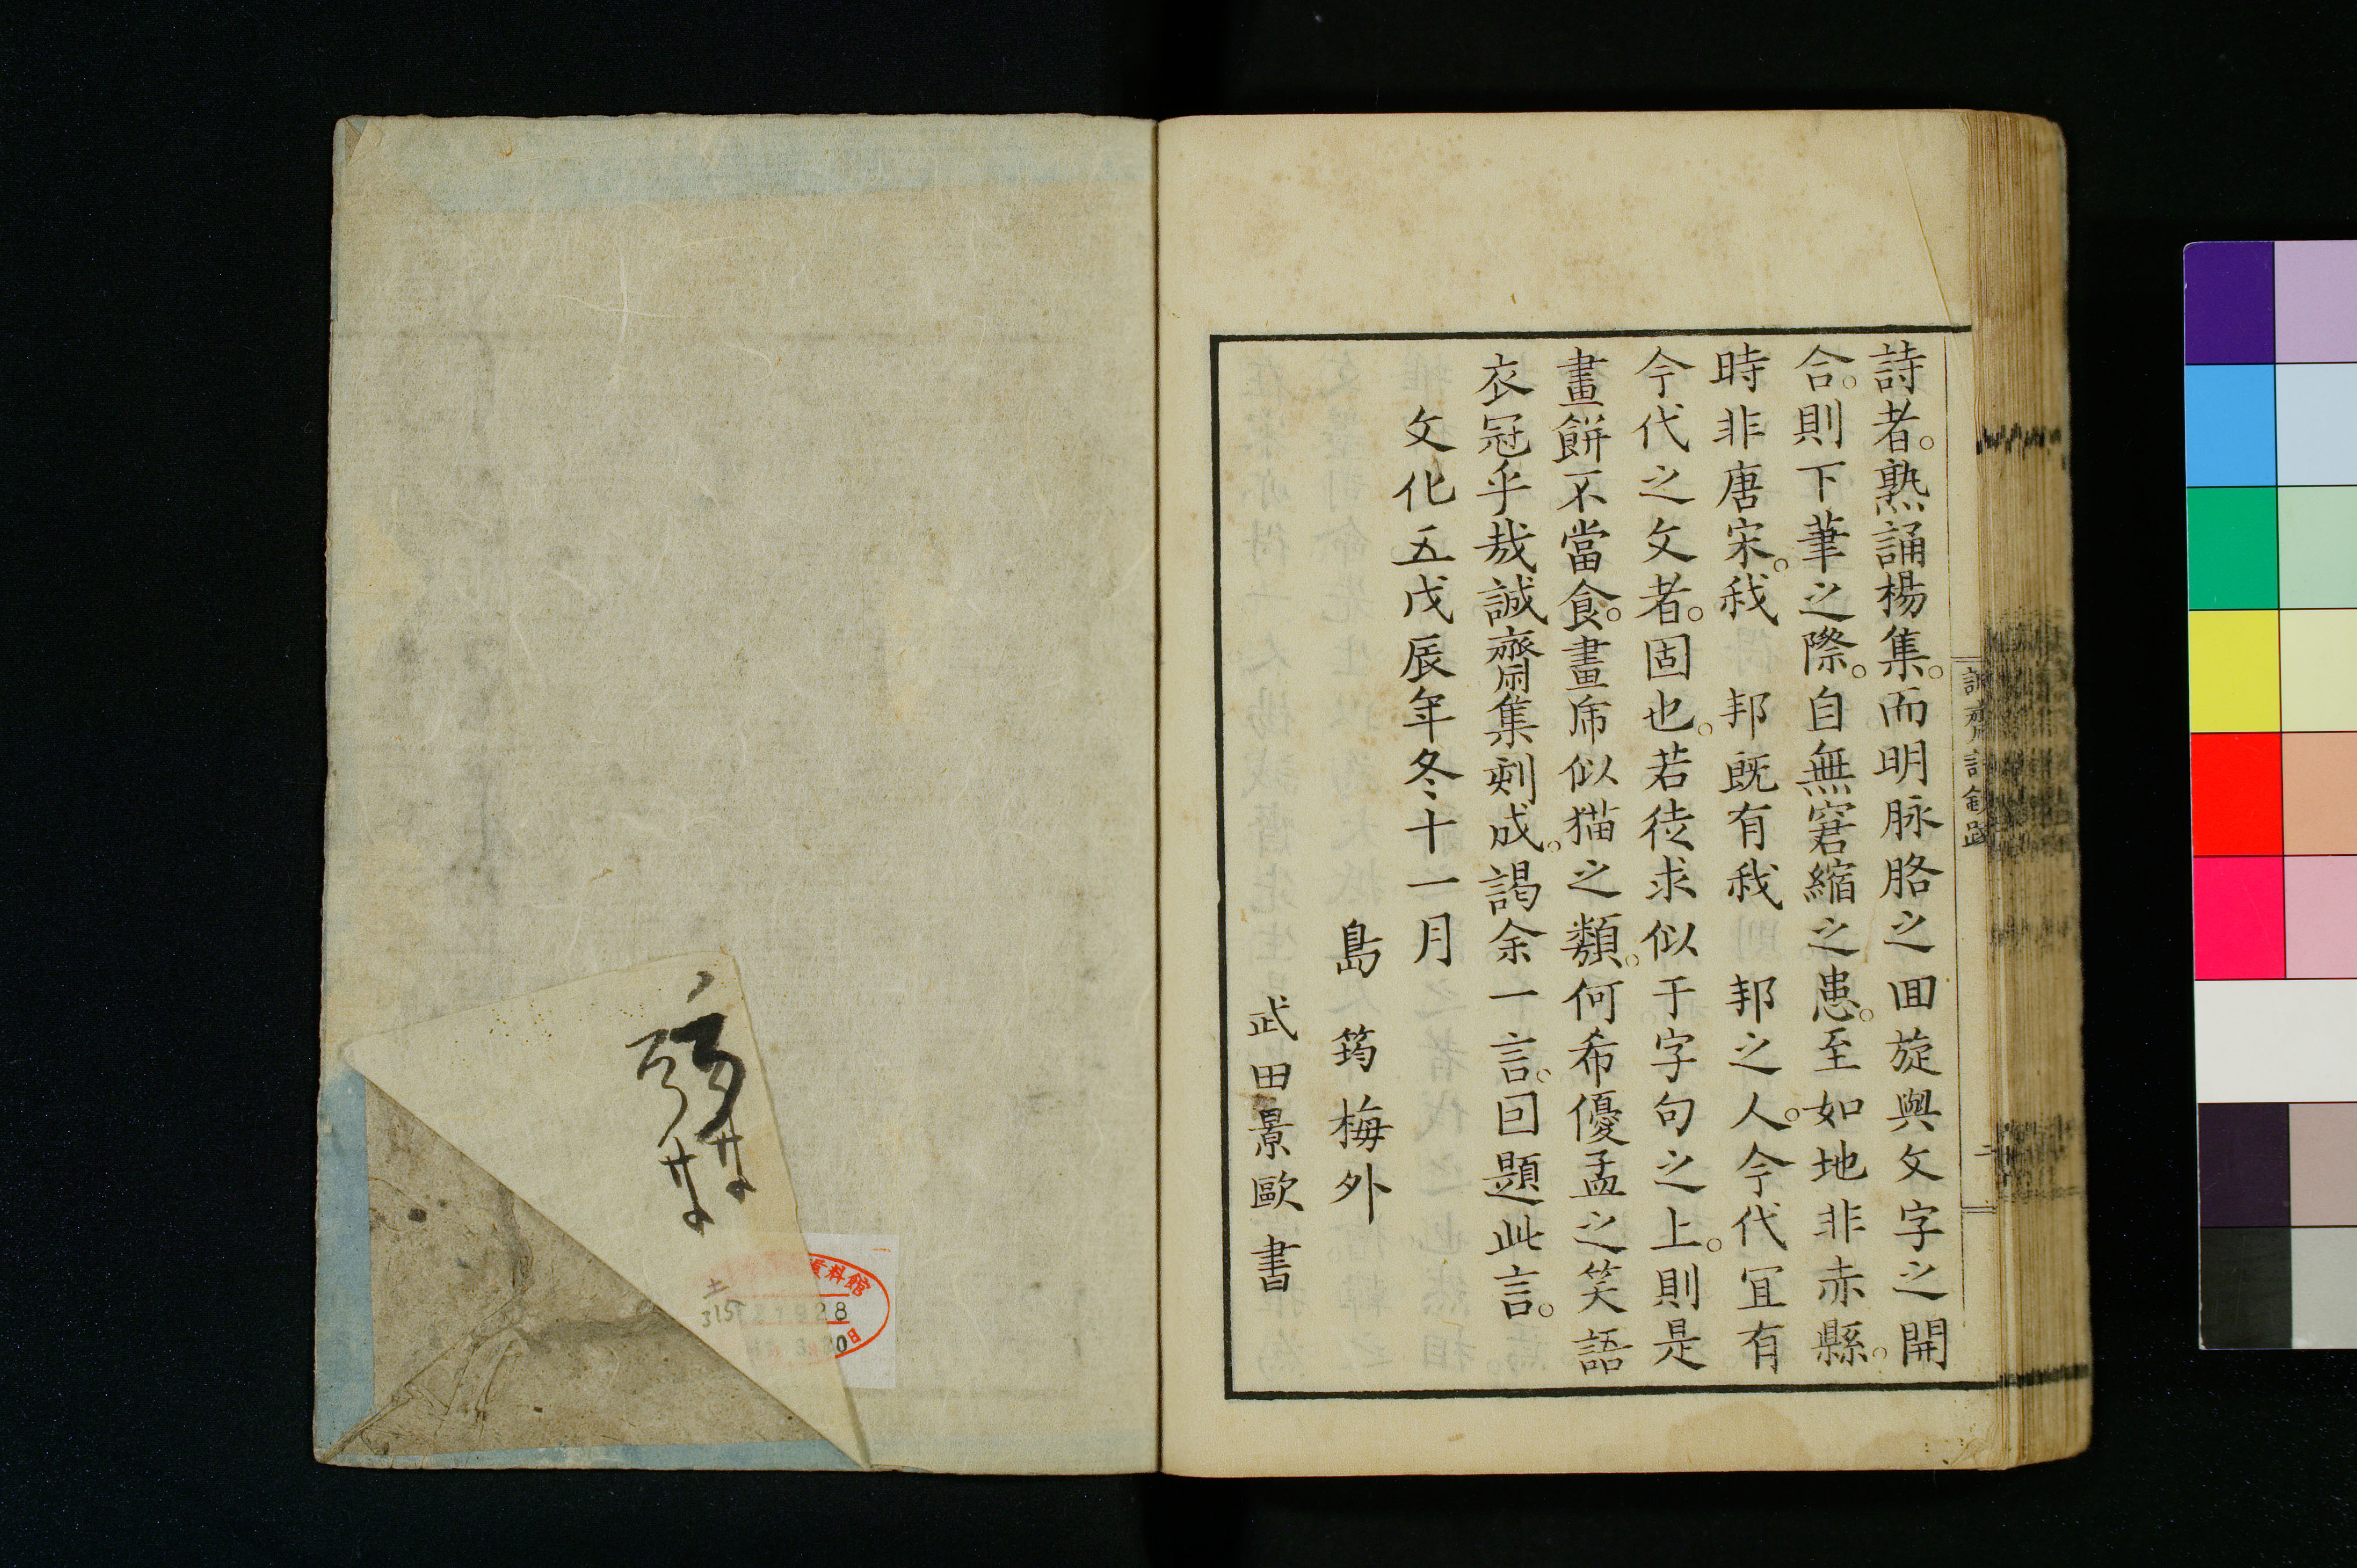 詩者。熟誦楊集。而明脉胳之囬旋與文字之開
合。則下筆之際。自無窘縮之患。至如地非赤縣。
時非唐宋。我　邦既有我　邦之人。今代冝有
今代之文者。固也。若徒求似于字句之上。則是
畫餅不當食。畫乕似猫之類。何希優孟之笑語
衣冠乎哉誠齋集刻成。謁余一言。囙題此言。
文化五戊辰年冬十一月
島　筠梅外
武田景歐書
誠齋詩鈔跋
二
資料館
28